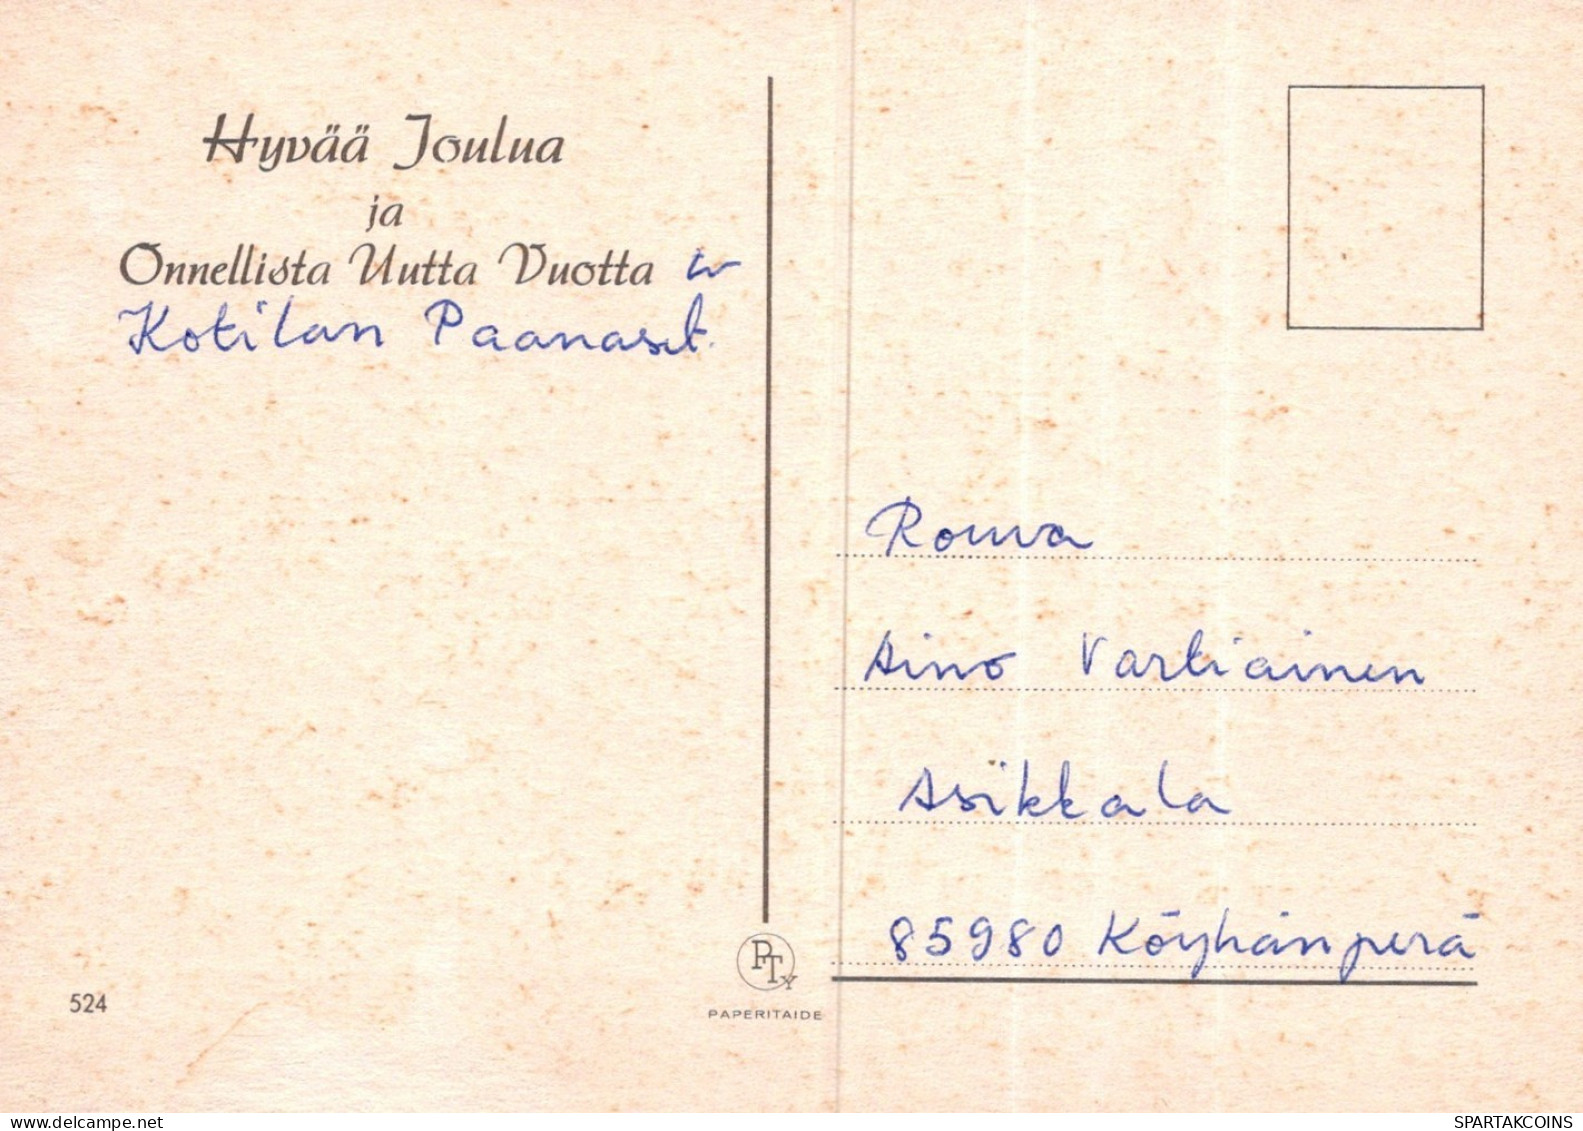 Hyvää Joulua
ja
Onnellista Uutta Vuotta tv
Kotilan Paanaset.
Rouva
Aino Vartiainen
Asikkala
85980 Köyhänperä
PTY
PAPERITAIDE
524
www.delcampe.net
SPARTAKCOINS